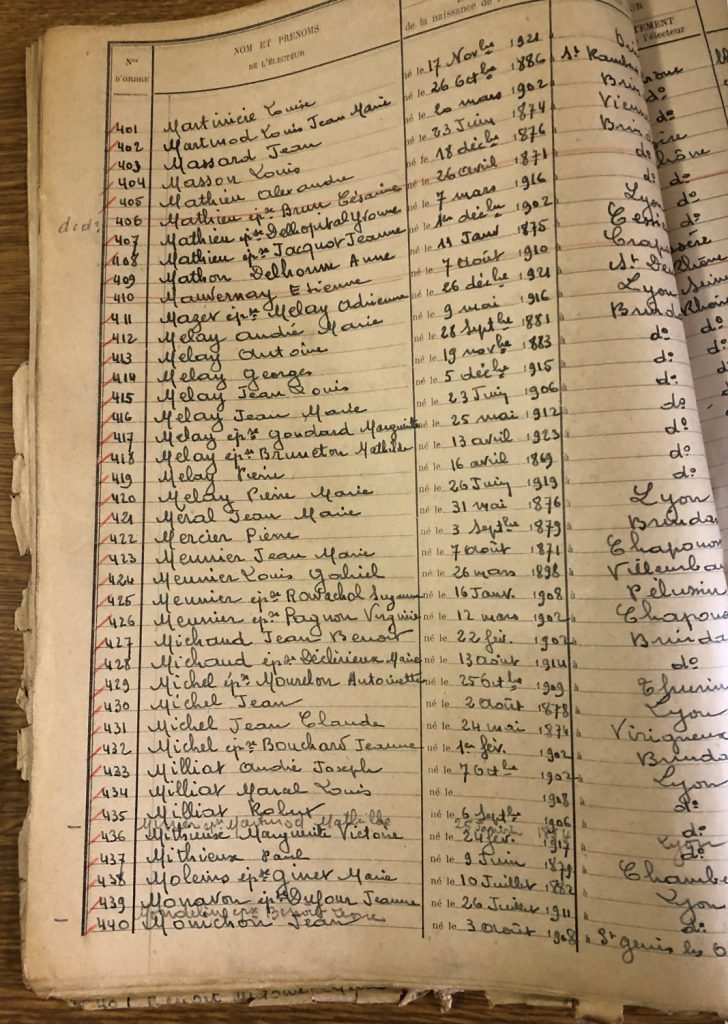 Nos D'ORDRE NOM ET PRENOMS DE L'ÉLECTEUR de la naissance de l'électeur
401 Martinière Louise né le 17 Novbre 1921
402 Martinod Louis Jean Marie né le 26 Octbre 1886 St Rambe
403 Massard Jean né le 20 mars 1902 Brin
404 Masson Louis né le 23 Juin 1874 Vien
405 Mathieu Alexandre né le 18 décbre 1876 Brin
dcdé 406 Mathieu épse Brun Césarine né le 26 avril 1871 do
407 Mathieu épse Delhopital Yvonne né le 7 mars 1916 do
408 Mathieu épse Jacquot Jeanne né le 1er décbre 1902 Lyo
409 Mathon Delhomme Anne né le 11 Janv 1875 Cessi
410 Mauvernay Etienne né le 7 août 1910 Crapo
411 Mazet épse Melay Adrienne né le 26 décbre 1921 St De
412 Melay André Marie né le 9 mai 1916 Lyon
413 Melay Antoine né le 28 Septbre 1881 Brinda
414 Melay Georges né le 19 novbre 1883 do
415 Melay Jean Louis né le 5 décbre 1915 do
416 Melay Jean Marie né le 23 Juin 1906 do
417 Melay épse Goudard Marguerite né le 25 mai 1912 do
418 Melay épse Bruneton Mathilde né le 13 avril 1923 do
419 Melay Pierre né le 16 avril 1869 do
420 Melay Pierre Marie né le 26 Juin 1919 do
421 Méral Jean Marie né le 31 mai 1876 à Lyon
422 Mercier Pierre né le 3 Septbre 1879 à Brinda
423 Meunier Jean Marie né le 7 août 1871 à Chapono
424 Meunier Louis Gabriel né le 26 mars 1898 à Villeurba
425 Meunier épse Ravachol Suzanne né le 16 Janv. 1908 à Pélussin
426 Meunier épse Pagnon Virginie né le 12 mars 1902 à Chapono
427 Michaud Jean Benoît né le 22 fév. 1902 à Brinda
428 Michaud épse Déclérieux Marie né le 13 août 1914 à do
429 Michel épse Mourelon Antoinette né le 25 Octbre 1909 à Thurin
430 Michel Jean né le 2 août 1878 à Lyon
431 Michel Jean Claude né le 24 mai 1874 à Virigneux
432 Michel épse Bouchard Jeanne né le 1er fév. 1902 à Brinda
433 Milliat André Joseph né le 7 Octbre 1902 à Lyon
434 Milliat Marcel Louis né le 1908 à do
435 Milliat Robert né le 6 Septbre 1906 à do
épse Martinod Mathilde Lyon
436 Mithieux Marguerite Victoire né le 24 fév. 1917 à do
437 Mithieux Paul né le 9 Juin 1879 à Chambé
438 Moleins épse Ginet Marie né le 10 Juillet 1882 à Lyon
439 Monavon épse Dufour Jeanne né le 26 Juillet 1911 à do
épse Benoit
440 Monichon Jean né le 3 août 1908 à St genis les O